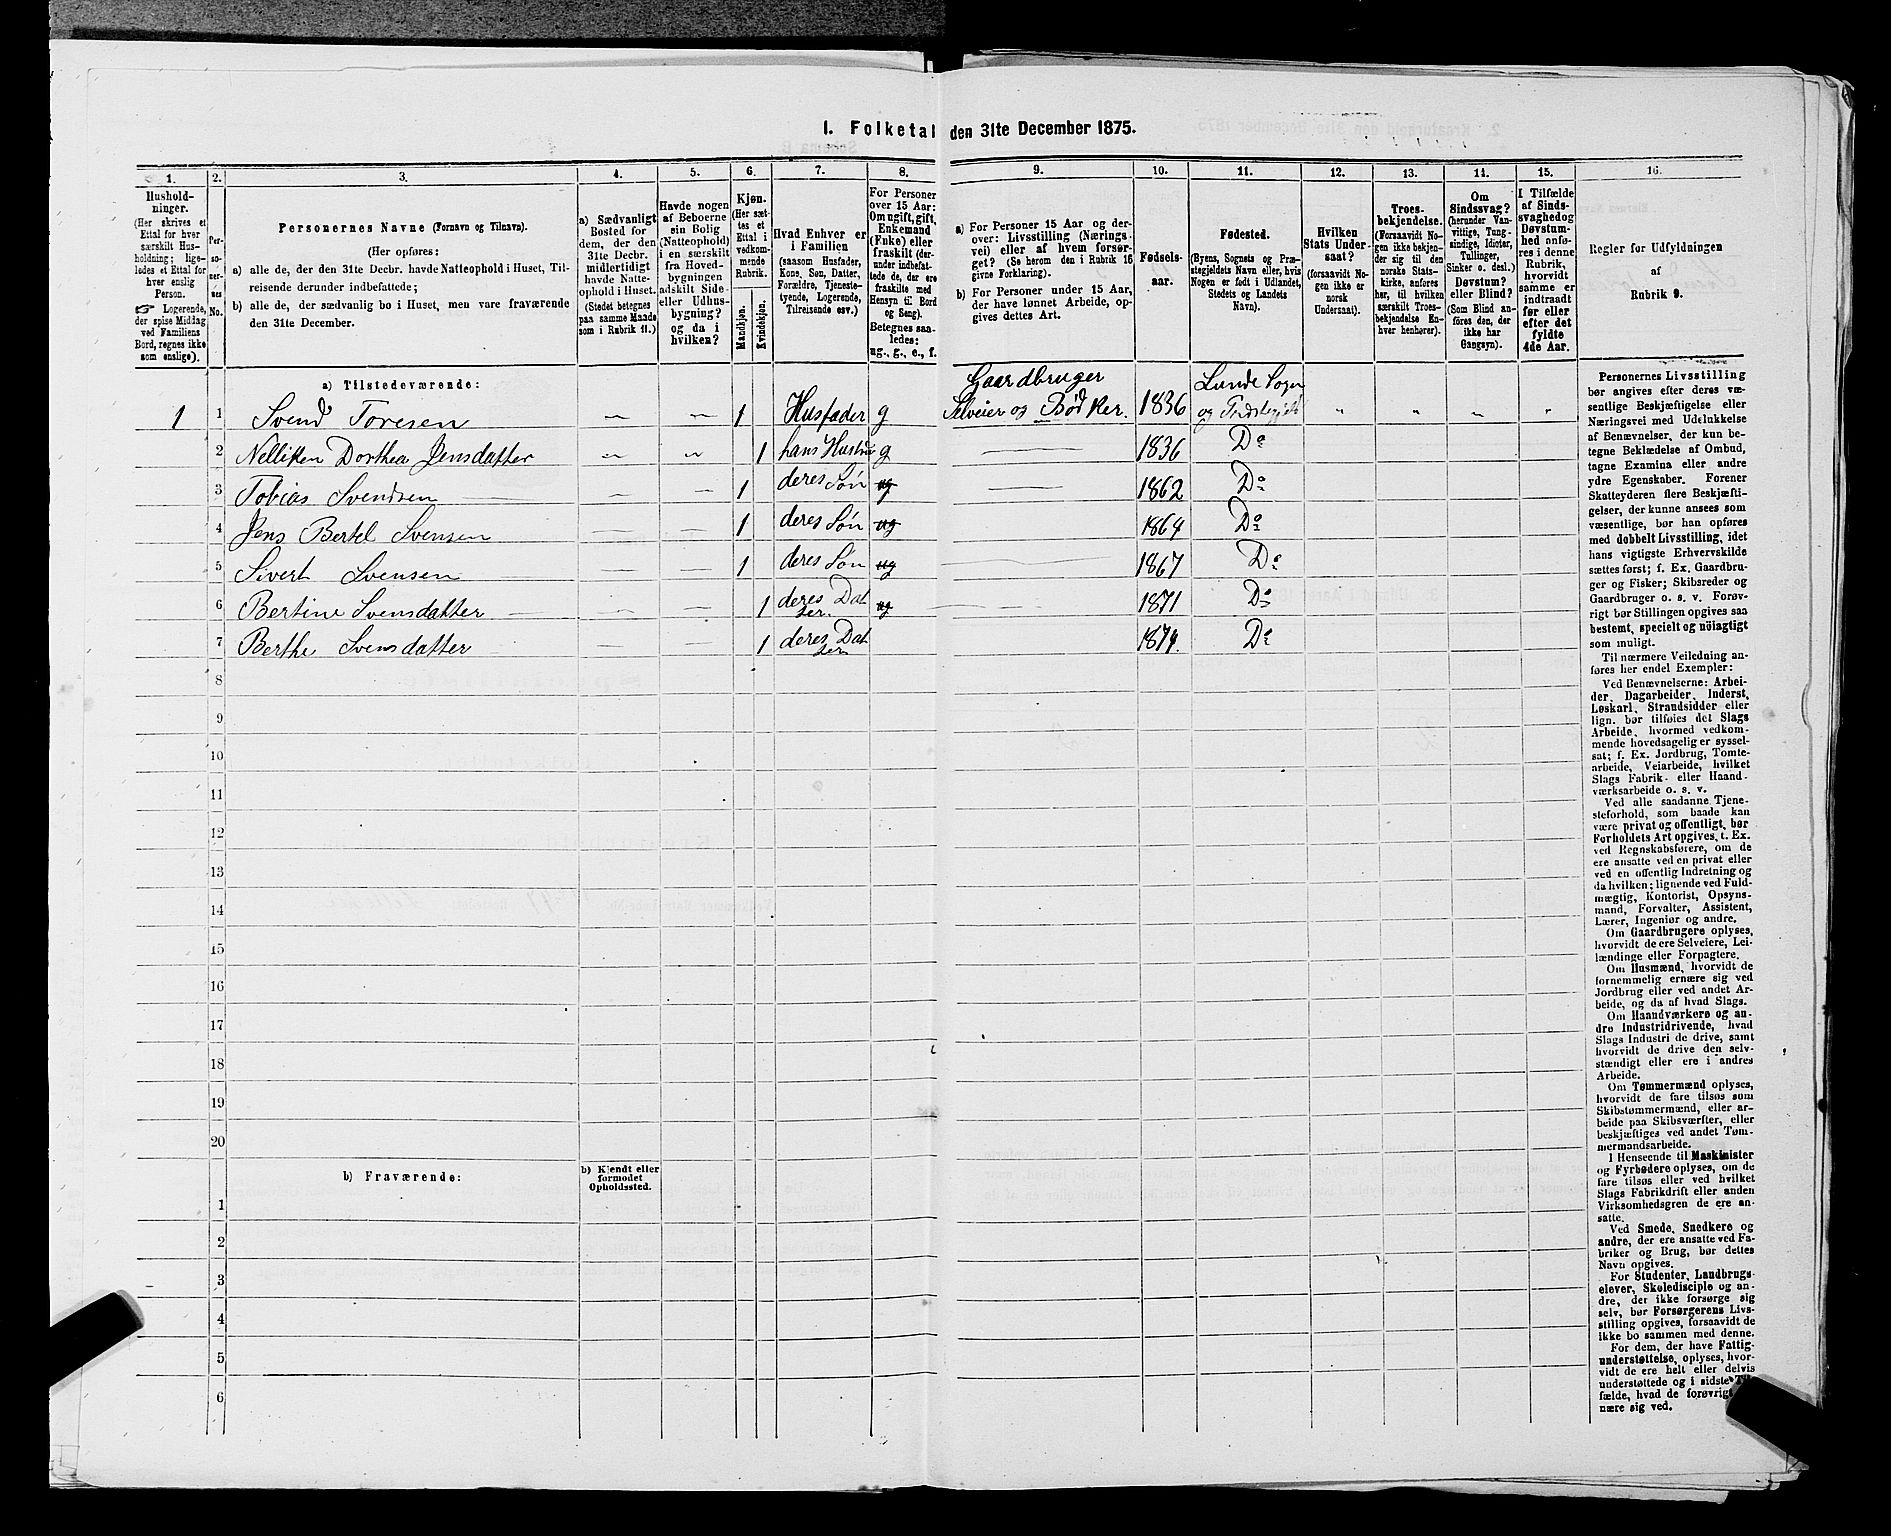 1. Folketal den 31te December 1875.
1. 2. 3. 4. 5. 6. 7. 8. 9. 10. 11. 12. 13. 14. 15. 16.
Hushold-
ninger.
(Her skrives et
Ettal for hver
særskilt Hus-
holdning; lige-
ledes et Ettal for
hver enslig
Person.
☞ Logerende,
der spise Middag
ved Familiens
Bord, regnes ikke
som enslige).
Per-
so-
ner-
nes
No.
Personernes Navne (Fornavn og Tilnavn).
(Her opføres:
a) alle de, der den 31te Decbr. havde Natteophold i Huset, Til-
reisende derunder indbefattede;
b) alle de, der sædvanlig bo i Huset, men vare fraværende
den 31te December.
a) Sædvanligt
Bosted for
dem, der den
31te Decbr.
midlertidigt
havde Natte-
ophold i Huset.
(Stedet betegnes
paa samme Maade
som i Rubrik 11.)
Havde nogen
af Beboerne
sin Bolig
(Natteophold)
i en særskilt
fra Hoved-
bygningen
adskilt Side-
eller Udhus-
bygning?
og da i
hvilken?
Kjøn.
(Her sæt-
tes et
Ettal i
vedkom-
mende
Rubrik.
Mandkjøn.
Kvindekjøn.
Hvad Enhver er
i Familien
(saasom Husfader,
Kone, Søn, Datter,
Forældre, Tjeneste-
tyende, Logerende,
Tilreisende osv.)
For Personer
over 15 Aar:
Om ugift, gift,
Enkemand
(Enke) eller
fraskilt (der-
under indbefat-
tede de, der ere
fraskilte med
Hensyn til Bord
og Seng).
Betegnes saa-
ledes:
ug., g., e., f.
a) For Personer 15 Aar og der-
over: Livsstilling (Nærings-
vei) eller af hvem forsør-
get? (Se herom den i Rubrik 16
givne Forklaring).
b) For Personer under 15 Aar,
der have lønnet Arbeide, op-
gives dettes Art.
Fødsels-
aar.
Fødested.
(Byens, Sognets og Præ-
stegjeldets Navn eller, hvis
Nogen er født i Udlandet,
Stedets og Landets
Navn).
Hvilken
Stats Under-
saat?
(forsaavidt No-
gen ikke er
norsk
Undersaat).
Troes-
bekjendelse.
(Forsaavidt No-
gen ikke bekjen-
der sig til den
norske Stats-
kirke, anføres
her, til hvilken
særskilt Troes-
bekjendelse En-
hver henhører).
Om
Sindssvag?
(herunder Van-
vittige, Tung-
sindige, Idioter,
Tullinger,
Sinker o. desl.)
Døvstum?
eller Blind?
(Som Blind an-
føres den, der
ikke har
Gangsyn).
I Tilfælde
af Sinds-
svaghed og
Døvstum-
hed anfø-
res i denne
Rubrik,
hvorvidt
samme er
indtraadt
før eller
efter det
fyldte
4de Aar.
Regler for Udfyldningen
af
Rubrik 9.
a) Tilstedeværende:
1 1 Svend Toresen 1 Husfader g Gaardbruger Selveier og Bødker. 1836 Lunde Sogn og
2 Nelliken Dorthea Jensdatter 1 hans Hustru g 1836 Do
3 Tobias Svendsen 1 deres Søn ug 1862 Do
4 Jens Bertel Svensen 1 deres Søn ug 1864 Do
5 Sivert Svensen 1 deres Søn ug 1867 Do
6 Bertine Svensdatter 1 deres Datter ug 1871 Do
7 Berthe Svensdatter 1 deres Datter 1874. Do
8
9
10
11
12
13
14
15
16
17
18
19
20
b) Fraværende:
b) Kjendt eller
formodet
Opholdssted.
1
2
3
4
5
6
Personernes Livsstilling
bør angives efter deres væ-
sentlige Beskjæftigelse eller
Næringsvei med Udelukkelse
af Benævnelser, der kun be-
tegne Beklædelse af Ombud,
tagne Examina eller andre
ydre Egenskaber. Forener
Skatteyderen flere Beskjæfti-
gelser, der kunne ansees som
væsentlige, bør han opføres
med dobbelt Livsstilling, idet
hans vigtigste Erhvervskilde
sættes først; f. Ex. Gaardbru-
ger og Fisker; Skibsreder og
Gaardbruger o. s. v. Forøv-
rigt bør Stillingen opgives saa
bestemt, specielt og nöiagtigt
som muligt.
Til nærmere Veiledning an-
føres her endel Exempler:
Ved Benævnelserne: Arbei-
der, Dagarbeider, Inderst,
Løskarl, Strandsidder eller
lign. bør tilføies det Slags
Arbeide, hvormed vedkom-
mende hovedsagelig er syssel-
sat; f. Ex. Jordbrug, Tomte-
arbeide, Veiarbeide, hvilket
Slags Fabrik- eller Haand-
værksarbeide o. s. v.
Ved alle saadanne Tjene-
steforhold, som baade kan
være privat og offentligt, bør
Forholdets Art opgives, t. Ex.
ved Regnskabsførere, om de
ere ansatte ved en privat eller
ved en offentlig Indretning og
da hvilken; lignende ved Fuld-
mægtig, Kontorist, Opsyns-
mand, Forvalter, Assistent,
Lærer, Ingeniør og andre.
Om Gaardbrugere oplyses,
hvorvidt de ere Selveiere, Lei-
lændinge eller Forpagtere.
Om Husmænd, hvorvidt de
fornemmelig ernære sig ved
Jordbrug eller ved andet Ar-
beide, og da af hvad Slags.
Om Haandværkere og an-
dre Industridrivende, hvad
Slags Industri de drive, samt
hvorvidt de drive den selv-
stændigt eller ere i andres
Arbeide.
Om Tømmermænd oplyses,
hvorvidt de fare tilsøs som
Skibstømmermænd, eller ar-
beide paa Skibsværfter, eller
beskjæftiges ved andet Tøm-
mermandsarbeide.
I Henseende til Maskinister
og Fyrbødere oplyses, om de
fare tilsøs eller ved hvilket
Slags Fabrikdrift eller anden
Virksomhedsgren de ere an-
satte.
Ved Smede, Snedkere og
andre, der ere ansatte ved Fa-
briker og Brug, bør dettes
Navn opgives.
For Studenter, Landbrugs-
elever, Skoledisciple og an-
dre, der ikke forsørge sig
selv, bør Forsørgerens Livs-
stilling opgives, forsaavidt de
ikke bo sammen med denne.
For dem, der have Fattig-
understøttelse, oplyses, hvor-
vidt de ere helt eller delvis
understøttede og i sidste Til-
fælde, hvad de forøvrigt
nære sig ved.